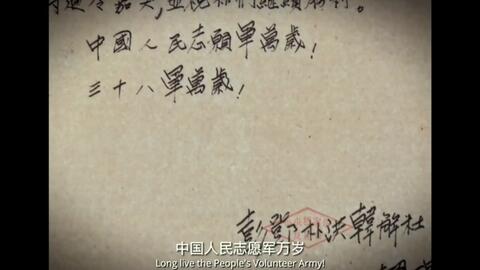 並祝你們繼續勝利。
中國人民志願軍萬歲！
三十八軍萬歲！
彭鄧朴洪韓解杜
中国人民志愿军万岁
Long live the People's Volunteer Army!